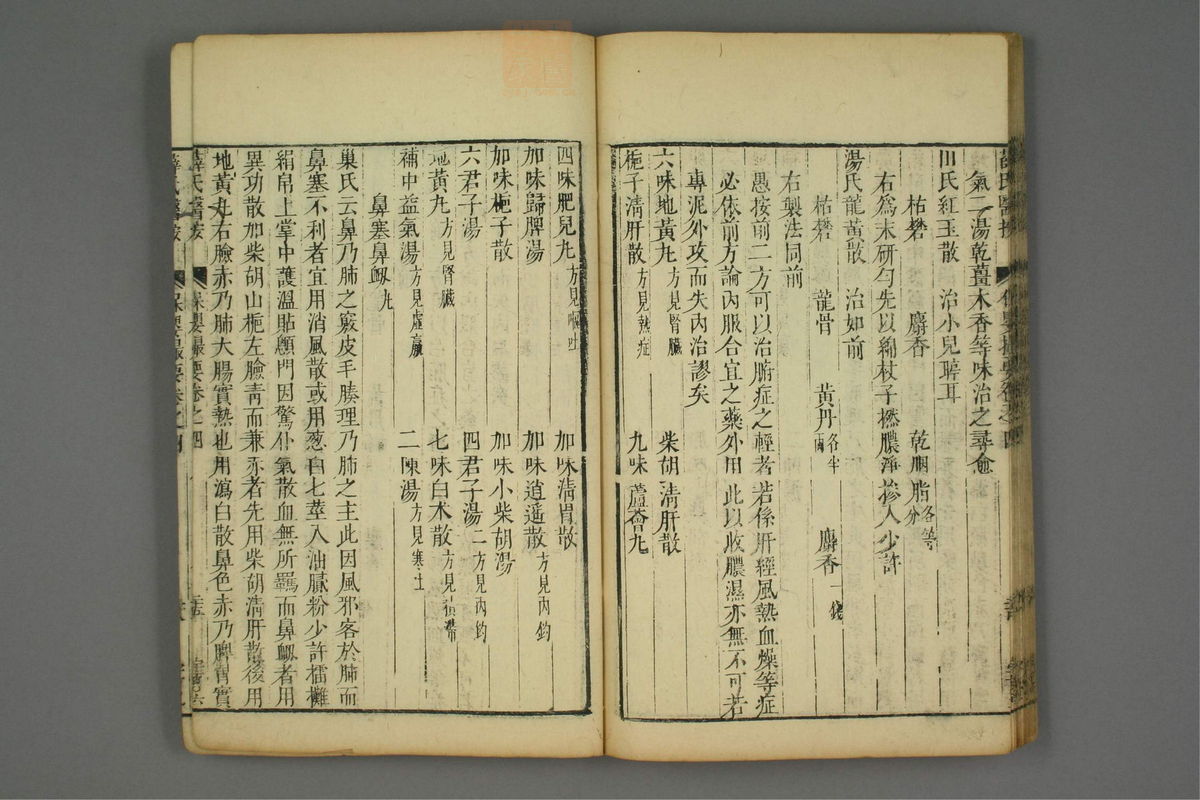 氣二湯乾薑木香等味治之尋愈
田氏紅玉散　治小兒聤耳
枯礬　麝香　乾胭脂各等分
右爲末研勻先以綿杖子撚膿淨摻人少許
湯氏龍黃散　治如前
枯礬　龍骨　黃丹各半兩　麝香一錢
右製法同前
愚按前二方可以治腑症之輕者若係肝經風熱血燥等症
必依前方論內服合宜之藥外用此以收膿濕亦無不可若
專泥外攻而失內治謬矣
六味地黃九方見腎臟　柴胡淸肝散
梔子淸肝散方見熱症　九味蘆薈九
四味肥兒九方見嘔吐　加味淸胃散
加味歸脾湯　加味逍遥散方見內釣
加味梔子散　加味小柴胡湯
六君子湯　四君子湯二方見內釣
地黃九方見腎臟　七味白朮散方見積滯
補中益氣湯方見虛羸　二陳湯方見寒吐
鼻塞鼻衂九
巢氏云鼻乃肺之竅皮毛腠理乃肺之主此因風邪客於肺而
鼻塞不利者宜用消風散或用葱白七莖入油膩粉少許擂攤
絹帛上掌中護溫貼顖門因驚仆氣散血無所羈而鼻衂者用
異功散加柴胡山梔左臉靑而兼赤者先用柴胡淸肝散後用
地黃丸右臉赤乃肺大腸實熱也用瀉白散鼻色赤乃脾胃實
薛氏醫按　保嬰撮要卷之四